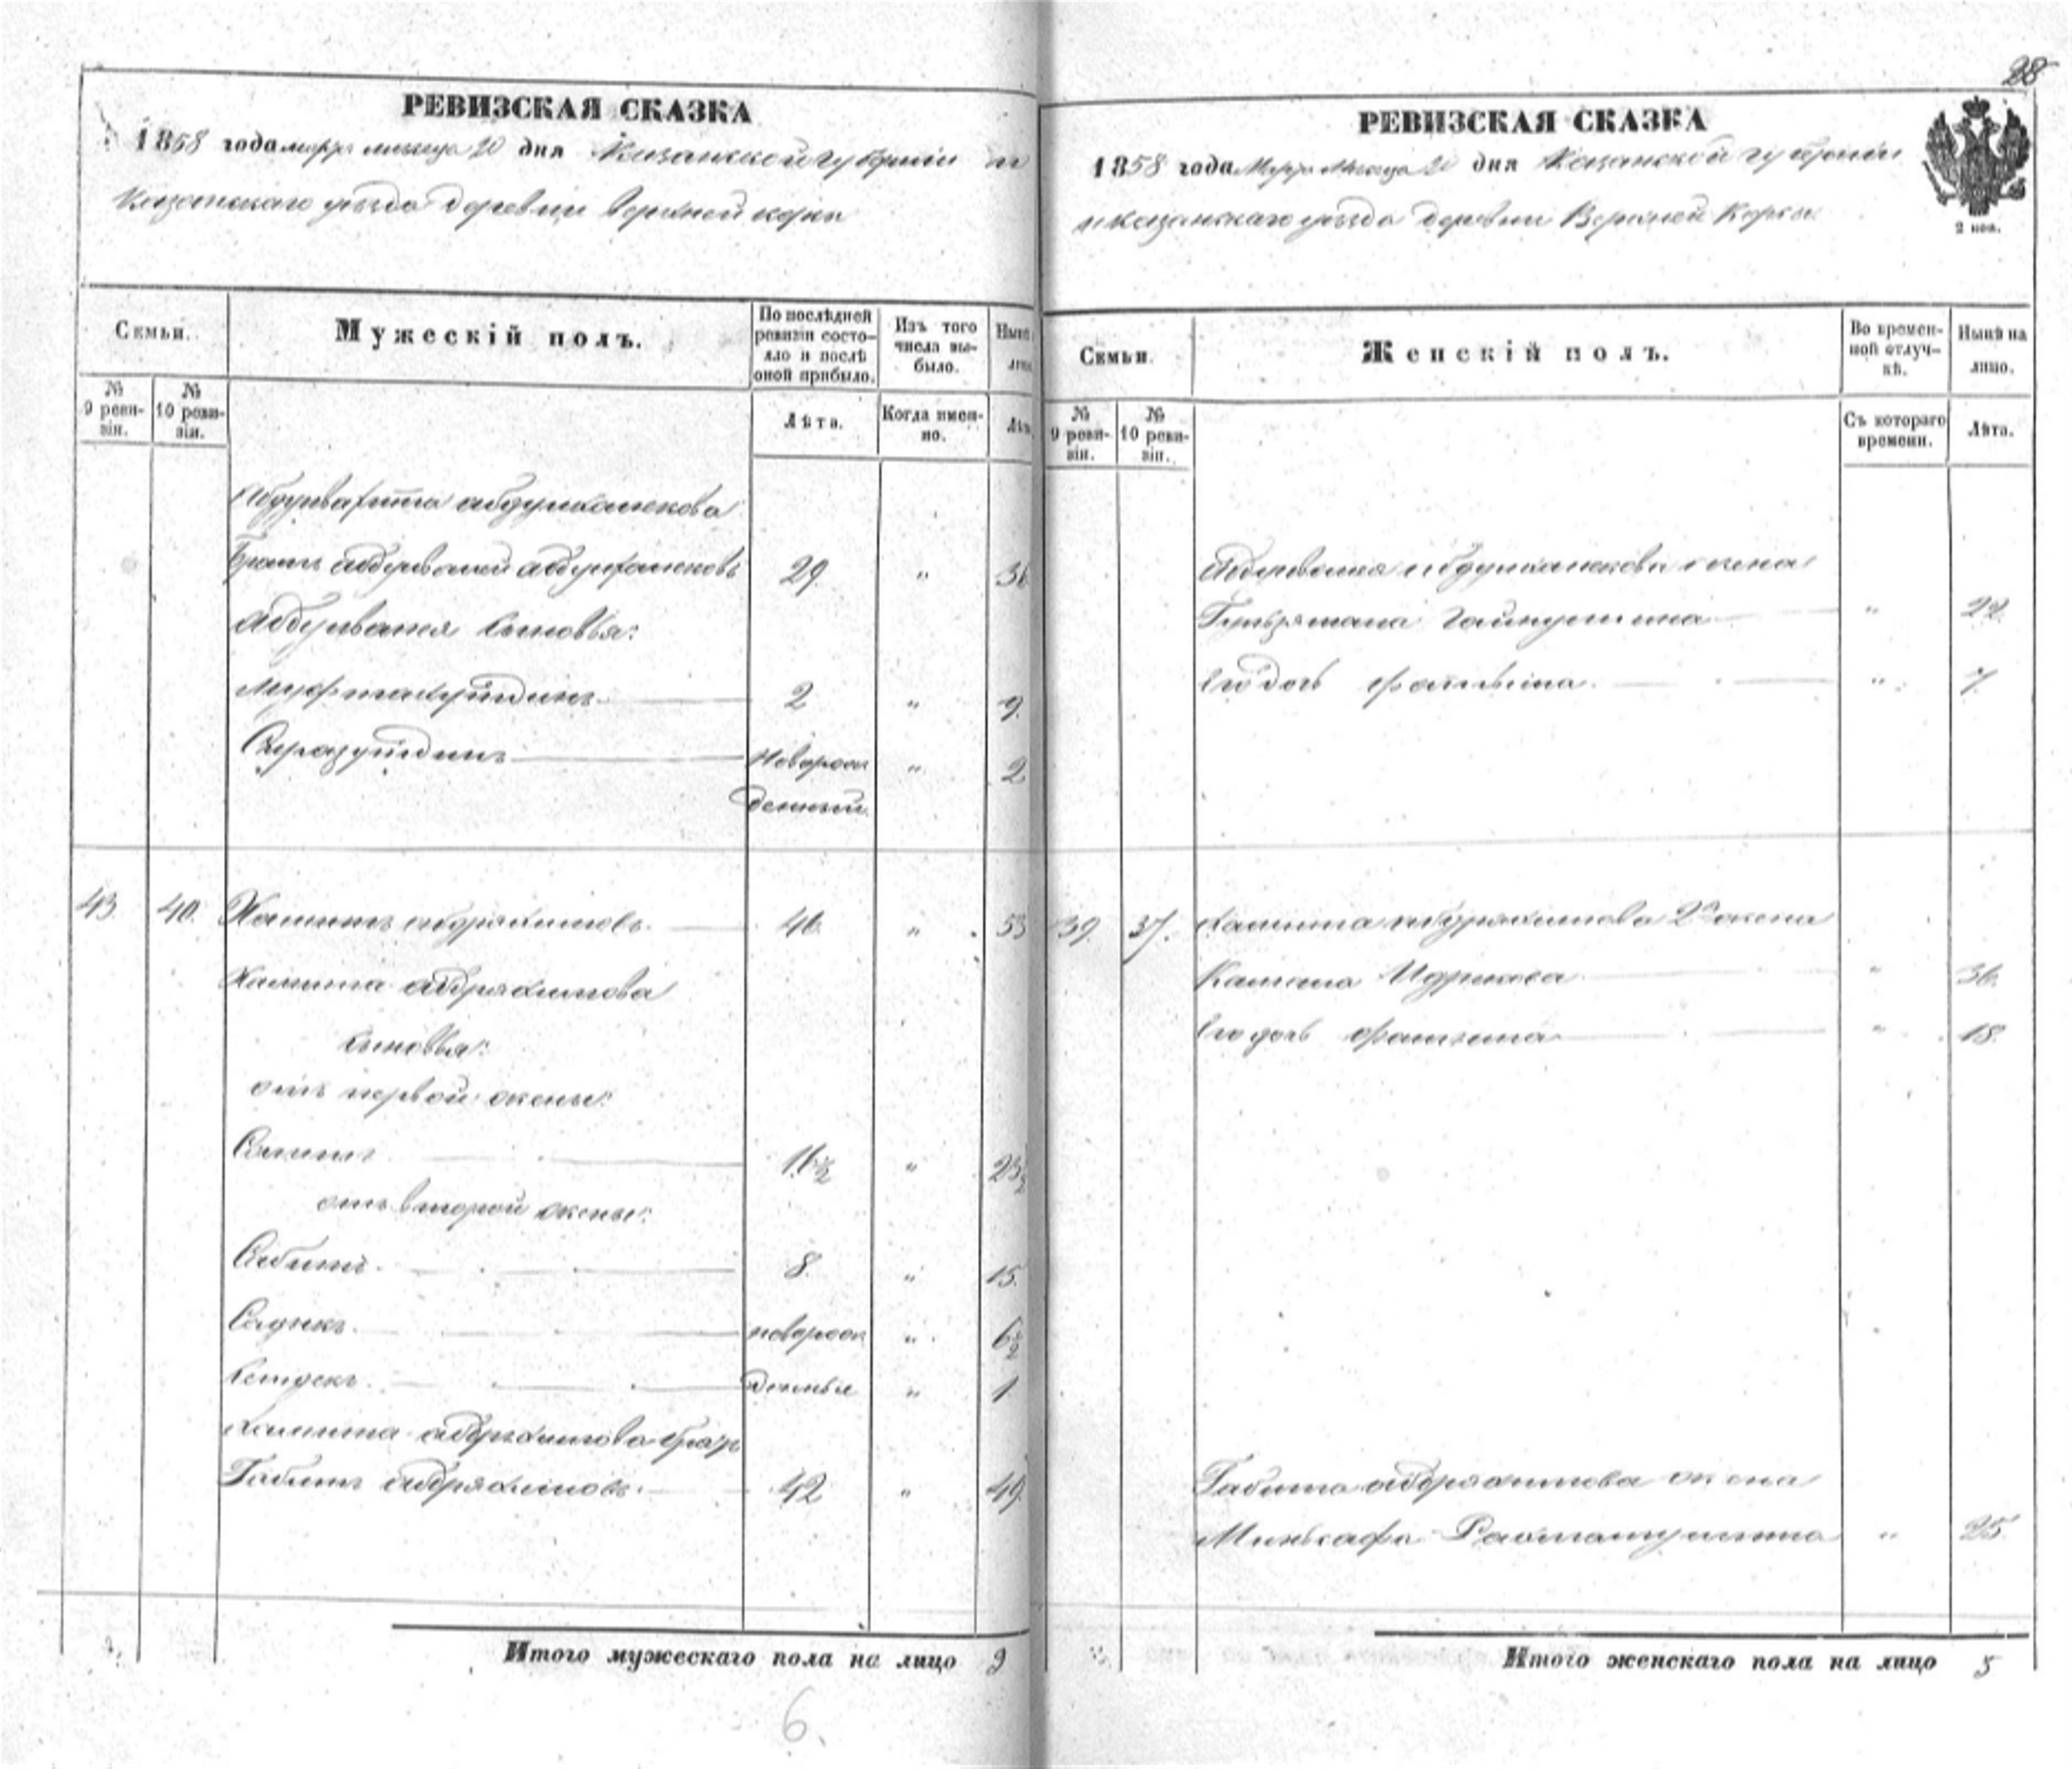 28
РЕВИЗСКАЯ СКАЗКА
1858 года марта месяца 20 дня Казанской губернии и
Казанскаго уезда деревни Верхней корсы
Семьи.
Мужескій полъ.
По послѣдней ревизіи состояло и послѣ оной прибыло.
Изъ того числа выбыло.
Нынѣ
№ 9 ревизіи.
№ 10 ревизіи.
Лѣта.
Когда именно.
Лѣта
абдулкаликова
Братъ абдулвалей абдулкаликовъ 29 " 36
Абдулвалея сыновья:
Муфтахутдинъ 2 " 9.
Сиразутдинъ Новорож " 2
денный.
43. 40. Хамитъ абдряхимовъ 46 " 53
Хамита абдряхимова
сыновья:
отъ первой жены:
16½ " 23½
отъ второй жены:
Сабитъ 8. " 15.
Садыкъ новорож " 6½
денные " 1
Хамита абдряхимова братъ
Габитъ абдряхимовъ 42 " 49.
Итого мужескаго пола на лицо 9
6.
РЕВИЗСКАЯ СКАЗКА
1858 года Марта Месяца 20 дня Казанской губернии
и казанскаго уезда деревни Верхней Корсы
2 коп.
Семьи.
Женскій полъ.
Во временной отлучкѣ.
Нынѣ на лицо.
№ 9 ревизіи.
№ 10 ревизіи.
Съ котораго времени.
Лѣта.
Абдулвалея абдулкаликова жена
Гайнуллина " 22.
Его дочь " 7.
39. 37. Хамита абдряхимова 2я жена
" 36.
Его дочь " 18.
Габита абдряхимова жена
Миньсафа Рахматуллина " 25.
Итого женскаго пола на лицо 5